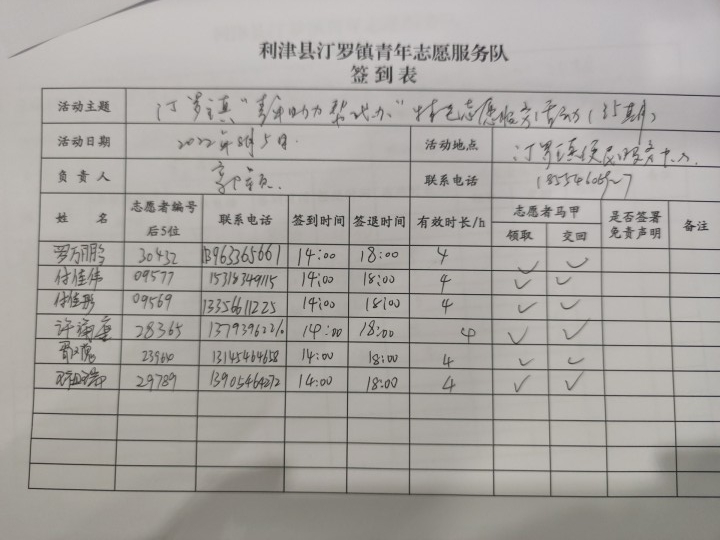 利津县汀罗镇青年志愿服务队
签到表
活动主题 汀罗镇"青年助力帮代办"特色志愿服务活动(35期)
活动日期 2022年8月5日. 活动地点 汀罗镇便民服务中心.
负责人 联系电话
姓 名 志愿者编号后5位 联系电话 签到时间 签退时间 有效时长/h 志愿者马甲 领取 交回 是否签署免责声明 备注
罗万鹏 30432 13963365661 14:00 18:00 4 ✓ ✓
付佳伟 09577 15318349115 14:00 18:00 4 ✓ ✓
付佳彤 09569 13356611225 14:00 18:00 4 ✓ ✓
28365 14:00 18:00 4 ✓ ✓
13145464658 14:00 18:00 4 ✓ ✓
29789 13905464272 14:00 18:00 4 ✓ ✓